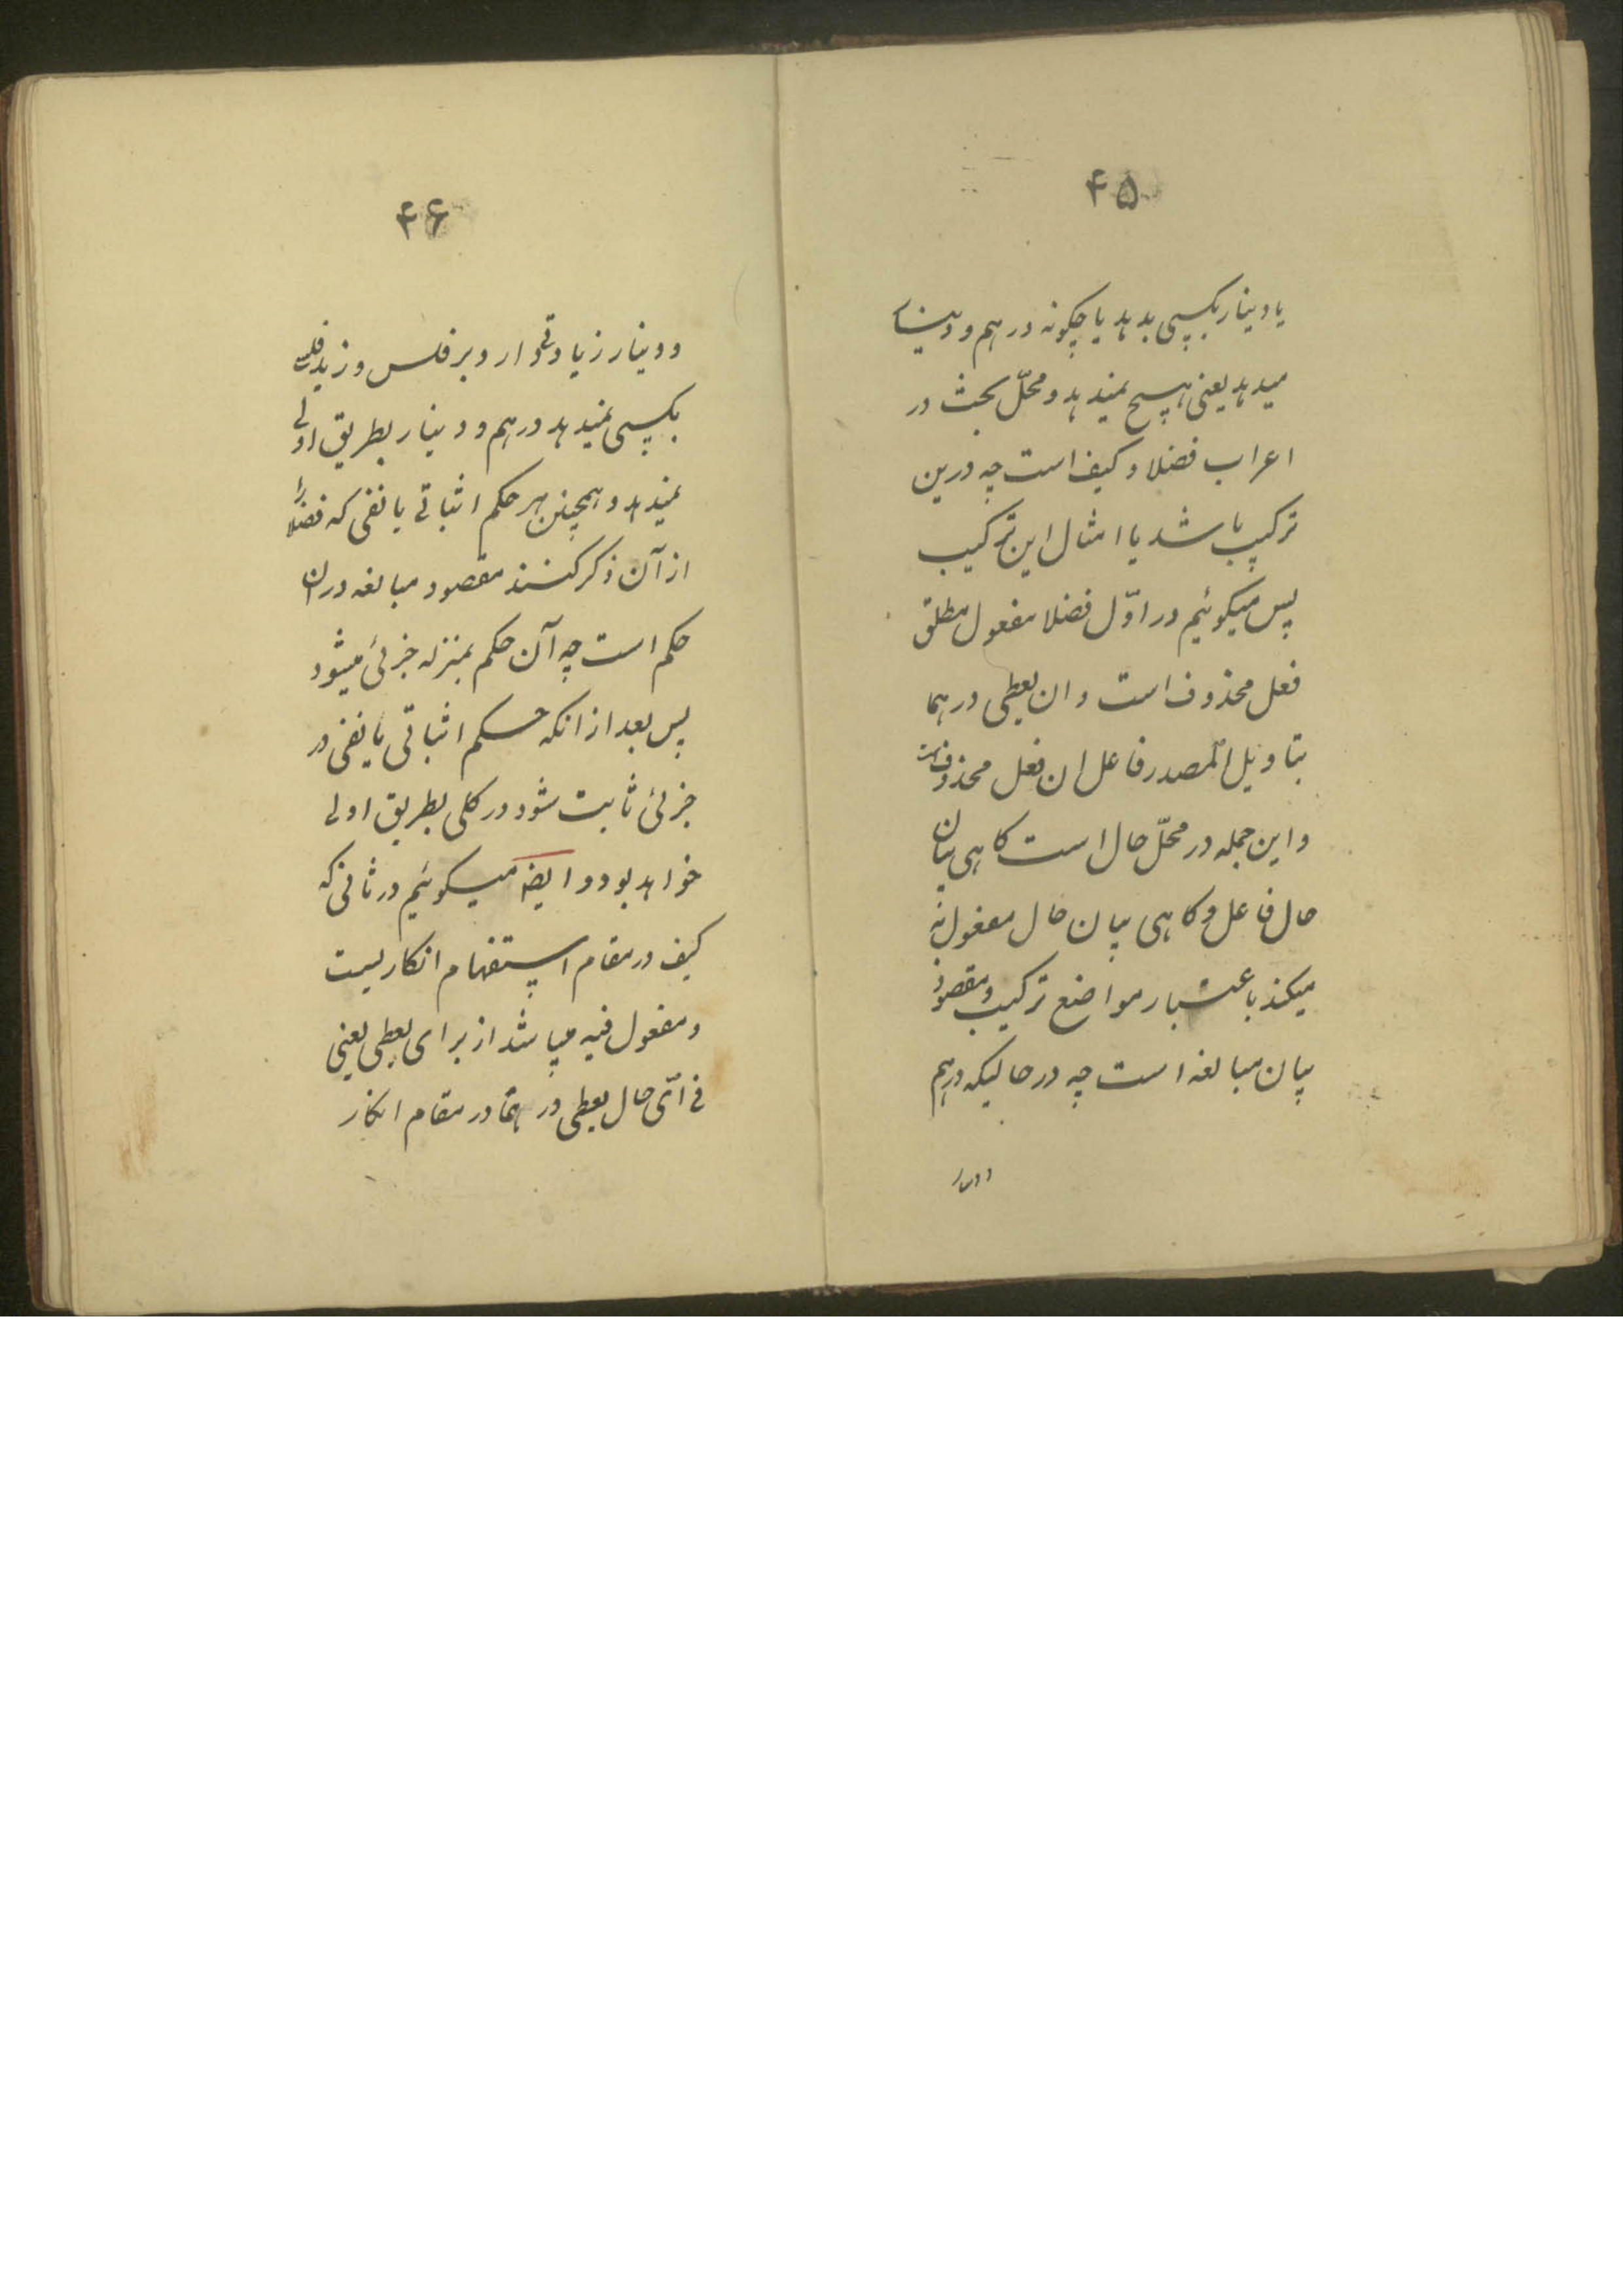 ۴۵
یا دینار بکسی بدهد یا چکونه درهم و دینار
میدهد یعنی هیچ نمیدهد و محلّ بحث در
اعراب فضلا و کیف است چه درین
ترکیب باشد یا امثال این ترکیب
پس میکوئیم در اوّل فضلا مفعول مطلق
فعل محذوف است و ان یعطی درهما
بتاویل المصدر فاعل ان فعل محذوفست
و این جمله در محلّ حال است کاهی بیان
حال فاعل و کاهی بیان حال مفعول به
میکند باعتبار مواضع ترکیب و مقصود
بیان مبالغه است چه در حالیکه درهم
۴۶
و دینار زیادتی دارد بر فلس و زید فلس
بکسی نمیدهد درهم و دینار بطریق اولی
نمیدهد و همچنین هر حکم اثباتی یا نفی که فضلا را
از آن ذکر کنند مقصود مبالغه در ان
حکم است چه آن حکم بمنزله جزئی میشود
پس بعد از انکه حکم اثباتی یا نفی در
جزئی ثابت شود در کلی بطریق اولی
خواهد بود و ایضا میکوئیم در ثانی که
کیف در مقام استفهام انکاریست
و مفعول فیه میباشد از برای یعطی یعنی
فی ایّ حال یعطی درهما در مقام انکار